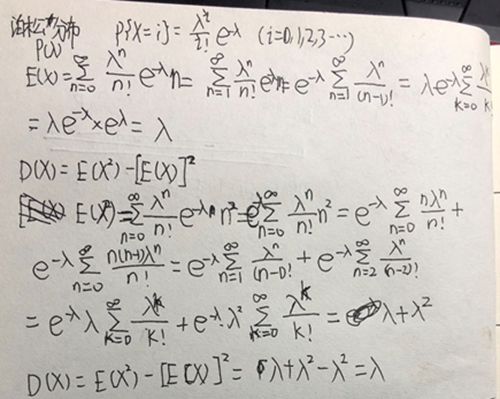 泊松分布 P{X=i}=λ^i/i! e^-λ (i=0,1,2,3…)
P(λ)
E(X)=∑_{n=0}^∞ λ^n/n! e^-λ n = ∑_{n=1}^∞ λ^n/n! e^-λ n = e^-λ ∑_{n=1}^∞ λ^n/(n-1)! = λe^-λ ∑_{k=0}^∞ λ^k/k!
=λe^-λ×e^λ=λ
D(X)=E(X²)-[E(X)]²
E(X²)=∑_{n=0}^∞ λ^n/n! e^-λ n²=e^-λ ∑_{n=0}^∞ λ^n/n! n²=e^-λ ∑_{n=0}^∞ nλ^n/n! +
e^-λ ∑_{n=0}^∞ n(n-1)λ^n/n! = e^-λ ∑_{n=1}^∞ λ^n/(n-1)! + e^-λ ∑_{n=2}^∞ λ^n/(n-2)!
=e^-λ λ ∑_{k=0}^∞ λ^k/k! + e^-λ λ² ∑_{k=0}^∞ λ^k/k! = λ+λ²
D(X)=E(X²)-[E(X)]²=λ+λ²-λ²=λ